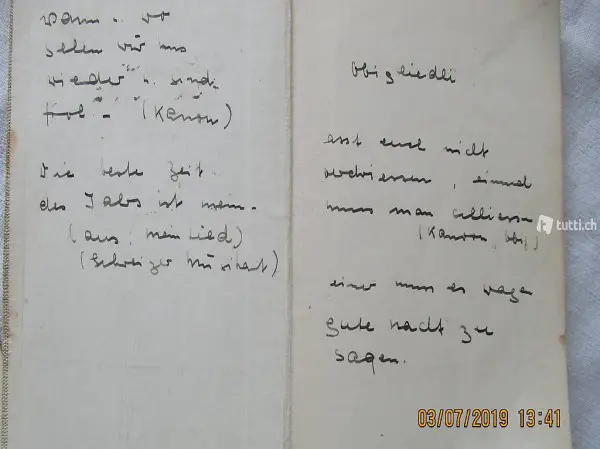 wann u. wo
sehen wir uns
wieder u. sind
froh - (Kanon)
Die beste Zeit
des Jahrs ist mein.
(aus, mein Lied)
(Schweizer Musikant)
Obigliedli
asst euch nicht
verdriessen, einmal
muss man schliessen
(Kanon, obi)
einer muss es wagen
gute nacht zu
sagen.
tutti.ch
03/07/2019 13:41